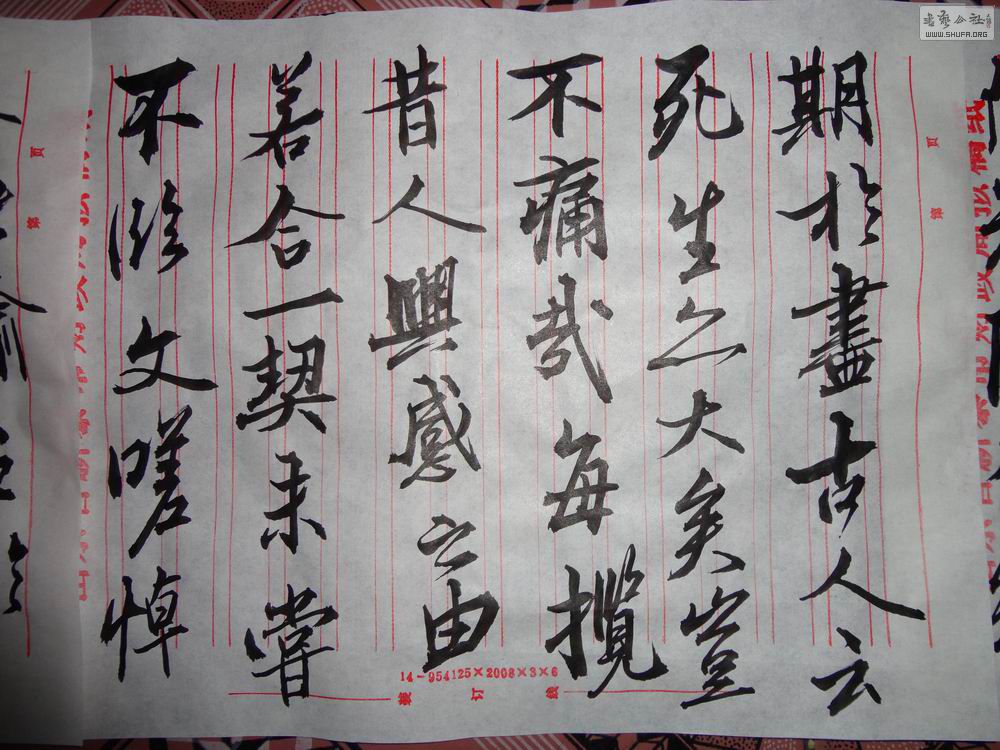 期於盡古人云
死生亦大矣豈
不痛哉每攬
昔人興感之由
若合一契未嘗
不臨文嗟悼
14-954125×2008×3×6
装订线
第 页
第 页
书艺公社
WWW.SHUFA.ORG